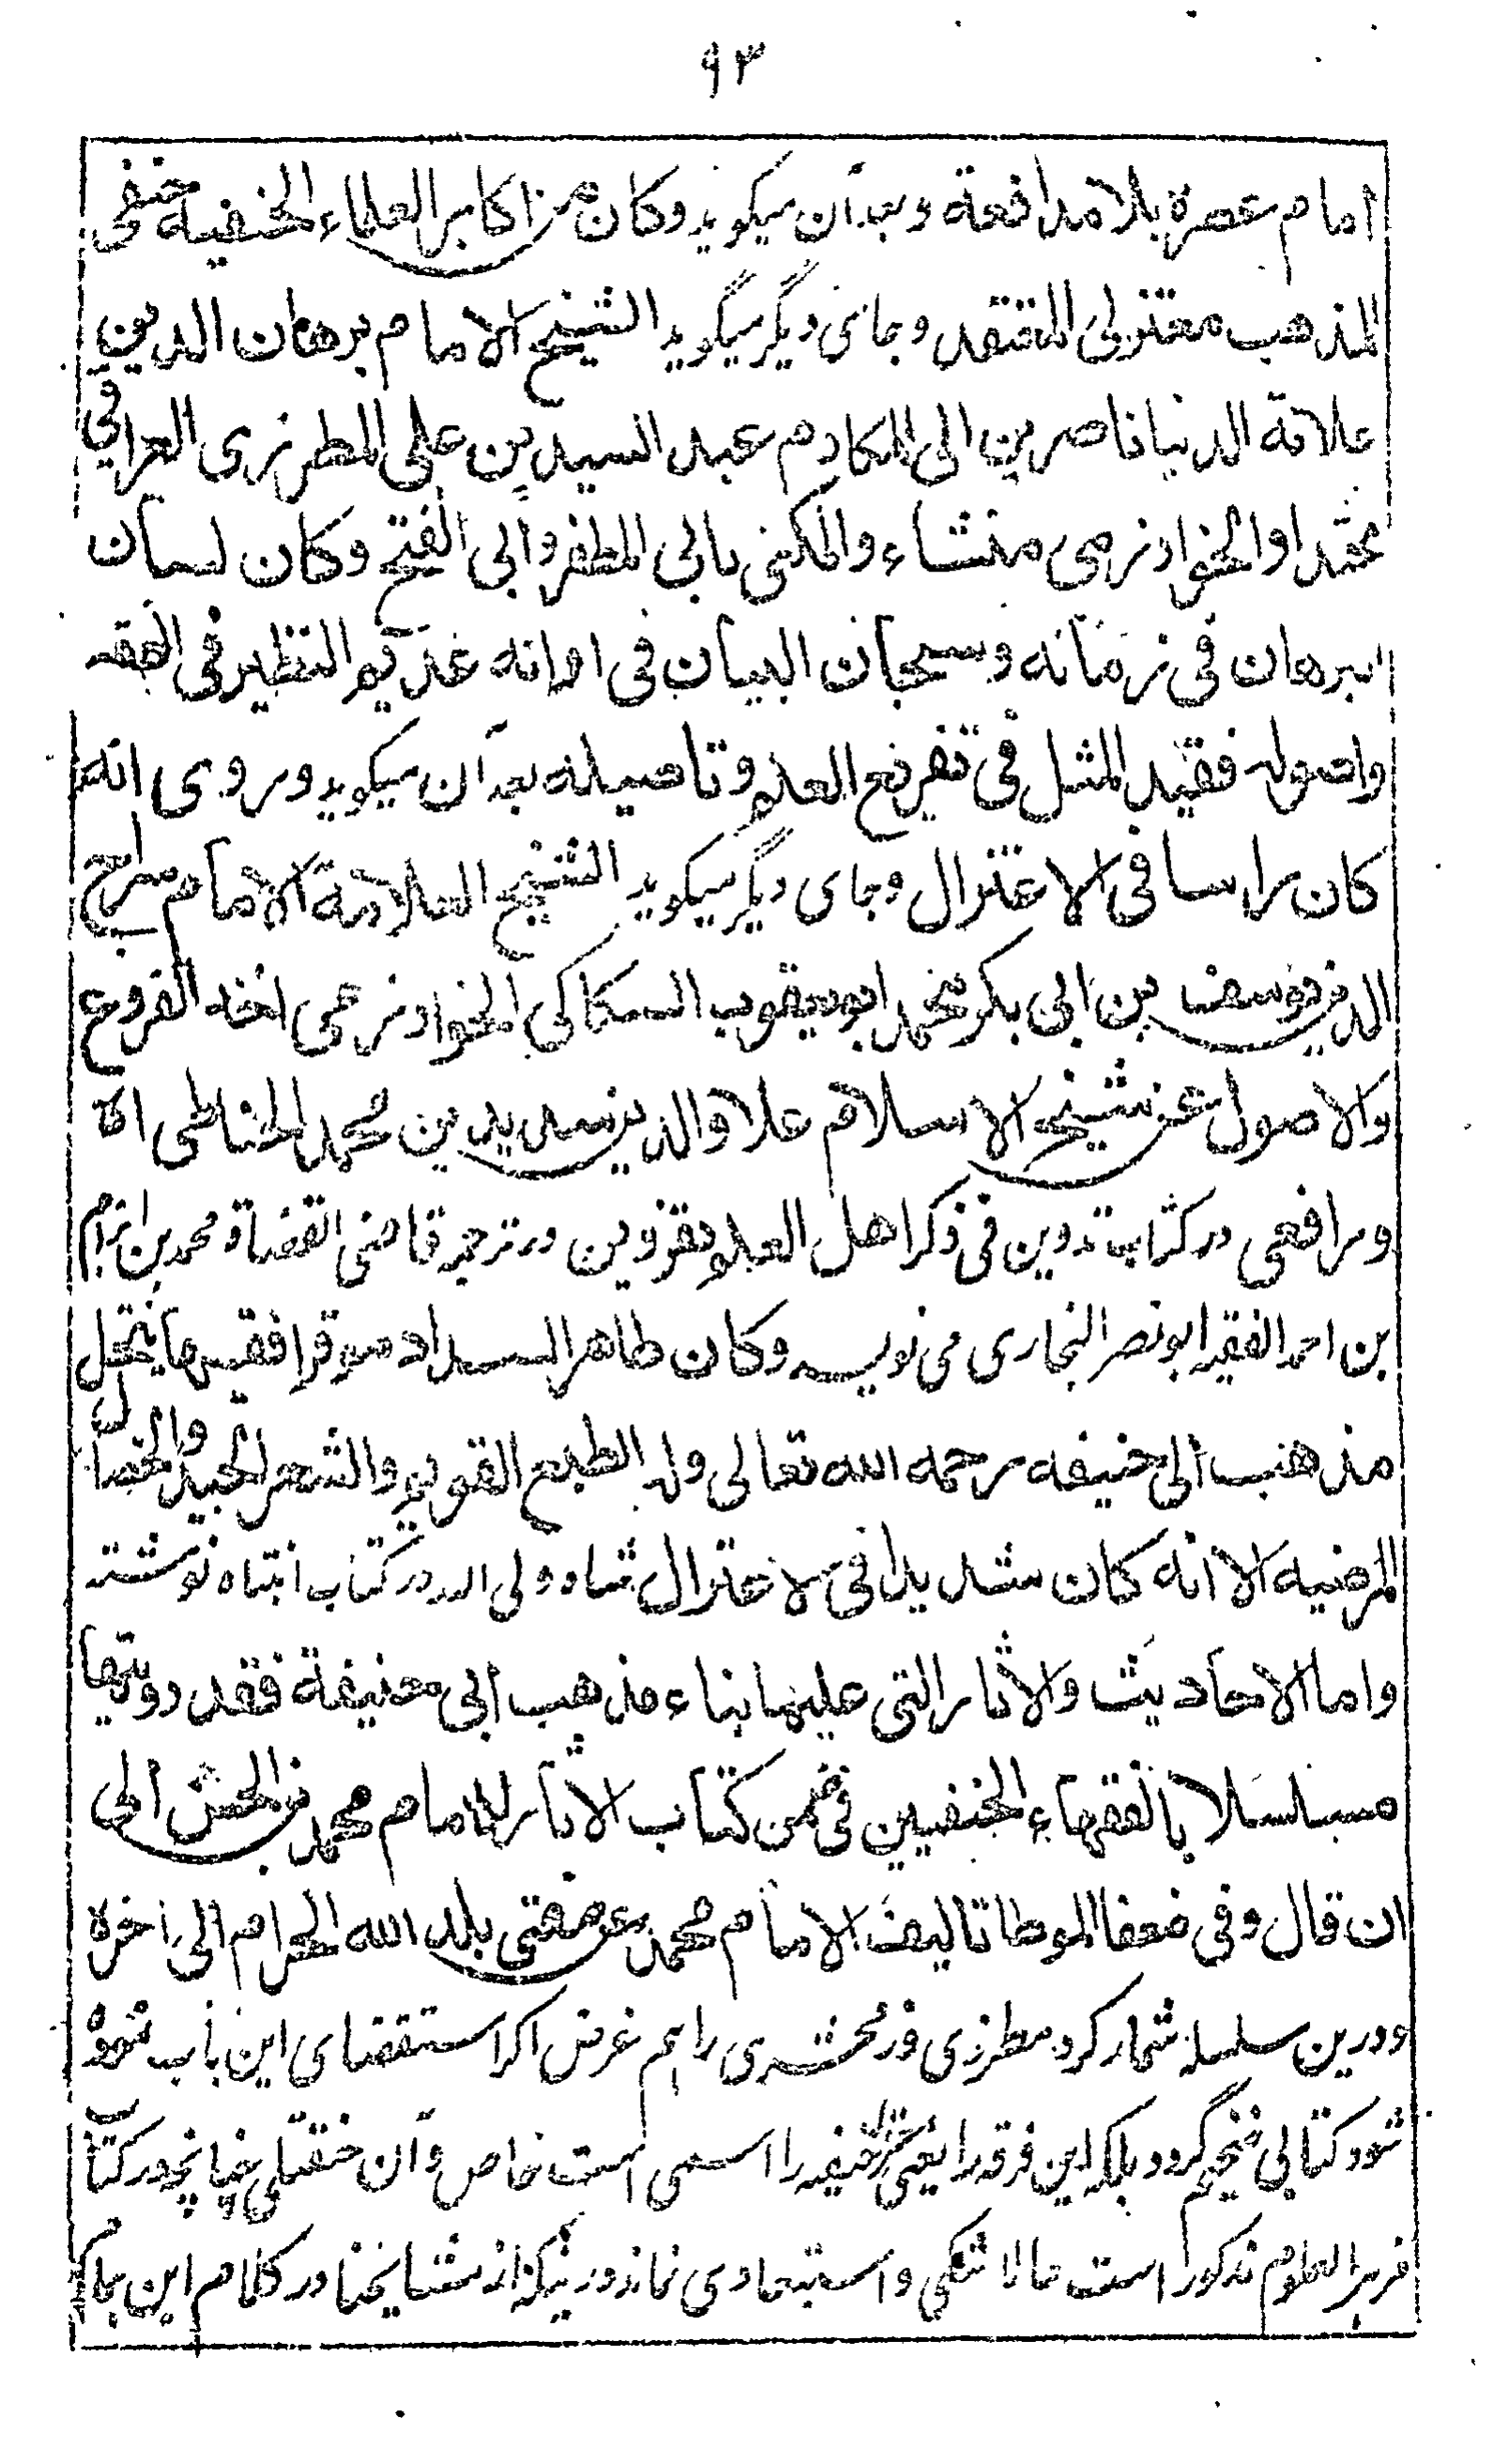 ۹۳
امام عصره بلا مدافعة وبعد آن میگوید وکان من اکابر العلماء الحنفیه حنفی
المذهب معتزلی المعتقد وجای دیگر میگوید الشیخ الامام برهان الدین
علامة الدنیا ناصر بن ابی المکارم عبد السید بن علی المطرزی العراقی
محتدا والخوارزمی منشاء والمکنی بابی المظفر وابی الفتح وکان لسان
البرهان فی زمانه وسحبان البیان فی اوانه عدیم النظیر فی الفقه
واصوله فقید المثل فی تفریع العلم وتاصیله بعد آن میگوید وروی انه
کان راسا فی الاعتزال وجای دیگر میگوید الشیخ العلامة الامام سراج
الدین یوسف بن ابی بکر محمد ابو یعقوب السکاکی الخوارزمی اخذ الفروع
والاصول عن شیخ الاسلام علاو الدین سدید بن محمد الحناطی اه
ورافعی در کتاب تدوین فی ذکر اهل العلم بقزوین در ترجمه قاضی القضاة محمد بن ابراهیم
بن احمد الفقیه ابو نصر البخاری می نویسد وکان ظاهر السداد موقرا فقیها ینتحل
مذهب ابی حنیفه رحمه الله تعالی وله الطبع القویم والشعر الجید والخصال
المرضیه الا انه کان شدیدا فی الاعتزال شاه ولی الله در کتاب انتباه نوشته
واما الاحادیث والاثار التی علیها بناء مذهب ابی حنیفة فقد رویتها
مسلسلا بالفقهاء الحنفیین فی ضمن کتاب الاثار للامام محمد بن الحسن الی
ان قال وفی ضعفا الموطا تالیف الامام محمد عن مفتی بلد الله الحرام الی اخره
ودرین سلسله شمار کرد مطرزی وزمخشری را هم غرض اگر استقصای این باب نموده
شود کتابی ضخیم گردد بلکه این فرقه را یعنی حنفیه را اسمی است خاص وآن حنفتلی چنانچه در کتاب
فرید العلوم مذکور است حالا شکی واستبعادی نماند در نیکه از مشایخنا در کلام ابن همام